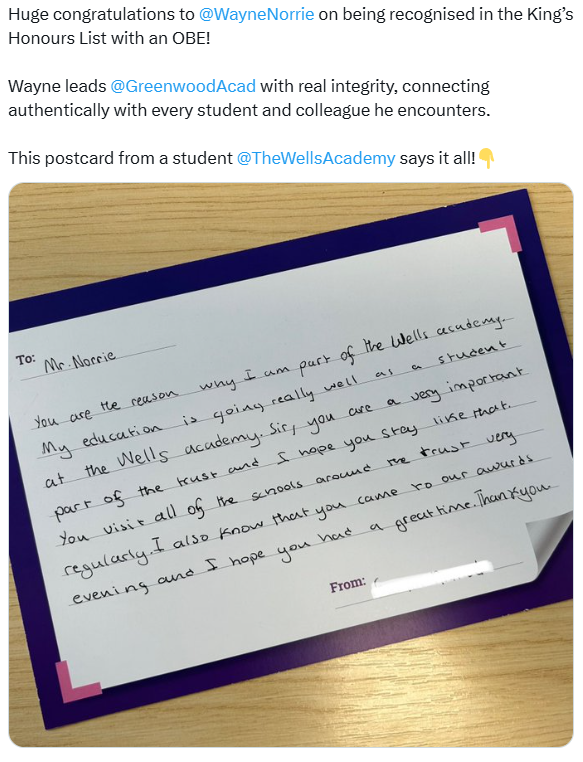 Huge congratulations to @WayneNorrie on being recognised in the King's
Honours List with an OBE!
Wayne leads @GreenwoodAcad with real integrity, connecting
authentically with every student and colleague he encounters.
This postcard from a student @TheWellsAcademy says it all!👇
To: Mr. Norrie
You are the reason why I am part of the Wells academy.
My education is going really well as a student
at the Wells academy. Sir, you are a very important
part of the trust and I hope you stay like that.
You visit all of the schools around the trust very
regularly. I also know that you came to our awards
evening and I hope you had a great time. Thankyou
From: